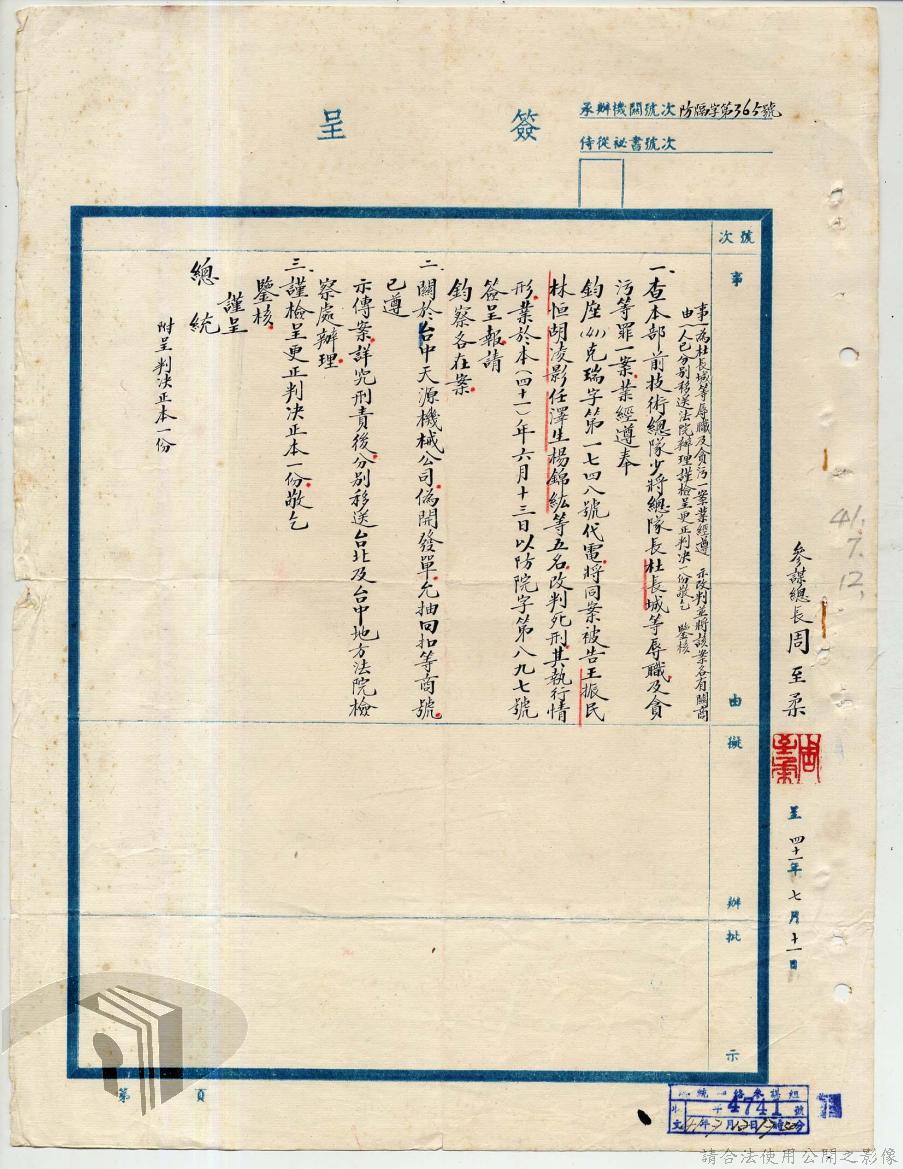 簽呈
承辦機關號次 防隔字第365號
侍從祕書號次
號次
事由
擬辦
批示
事由 一為杜長城等辱職及貪污一案業經遵 示改判並將該案各有關商
人已分別移送法院辦理謹檢呈更正判決一份敬乞 鑒核
一、查本部前技術總隊少將總隊長杜長城等辱職及貪
污等罪一案業經遵奉
鈞座(41)克瑞字第一七四八號代電將同案被告王振民
林恒胡凌影任澤生楊錦紘等五名改判死刑其執行情
形業於本(四十一)年六月十三日以防院字第八九七號
簽呈報請
鈞察各在案
二、關於台中天源機械公司偽開發單允抽回扣等商號
已遵
示傳案詳究刑責後分別移送台北及台中地方法院檢
察處辦理
三、謹檢呈更正判決正本一份敬乞
鑒核
謹呈
總統
附呈判決正本一份
參謀總長周至柔
周至柔
呈 四十一年七月十一日
41.7.12.
第 頁
4741
請合法使用公開之影像